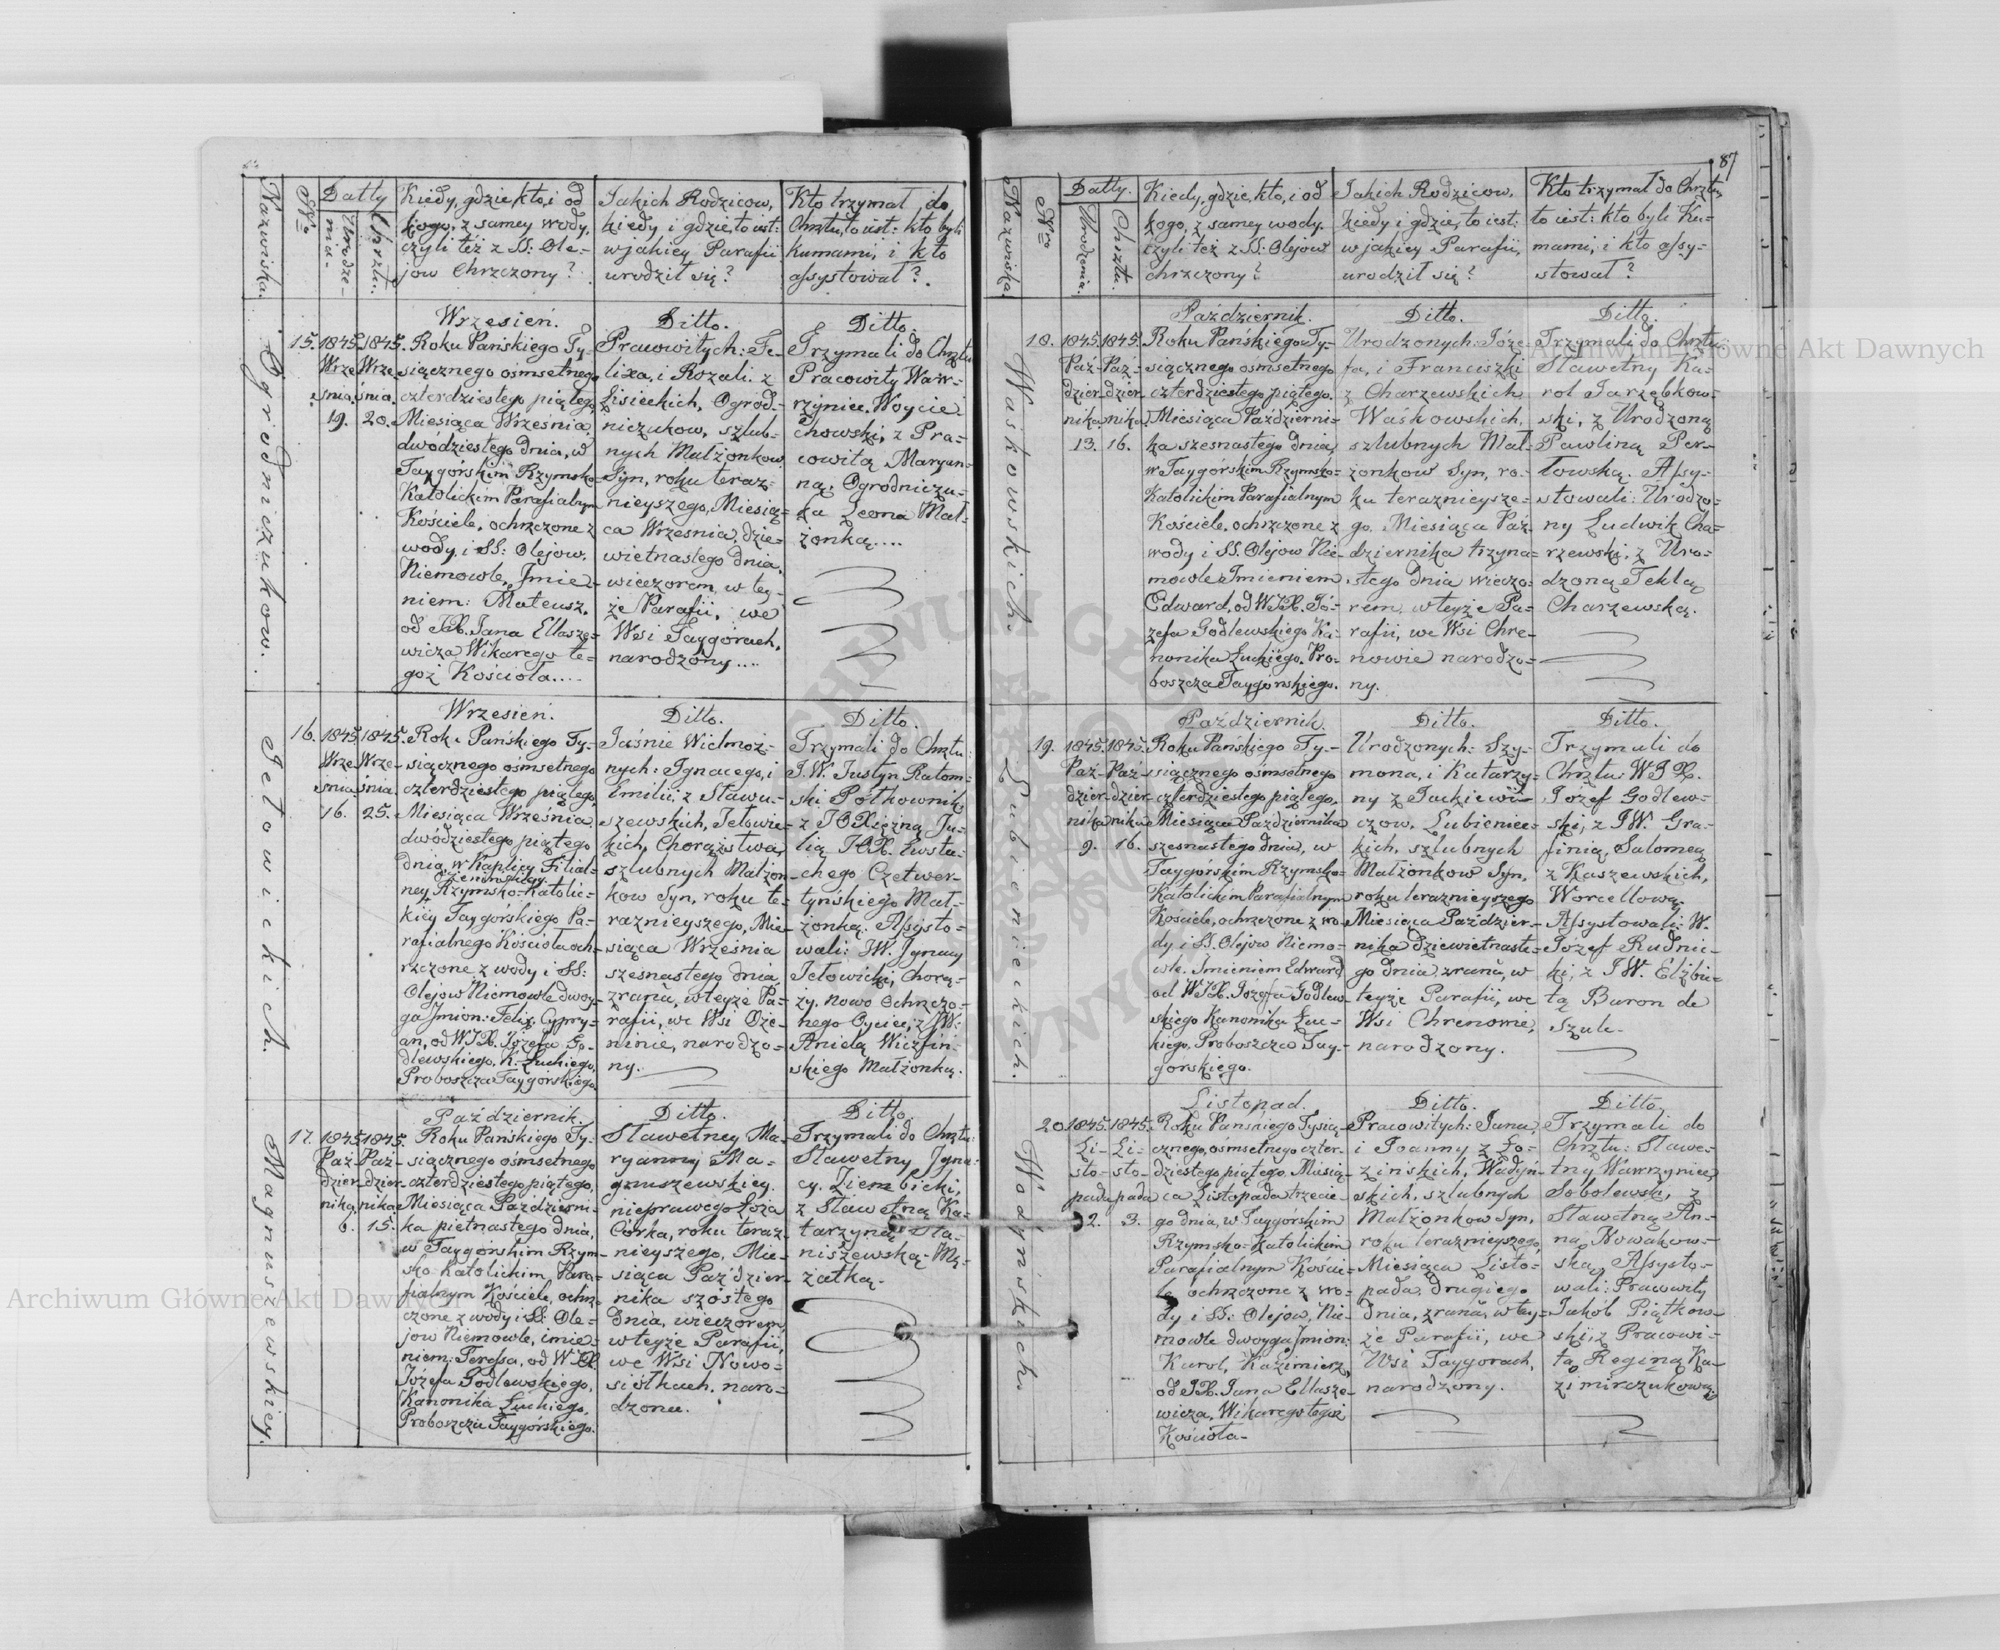 87
Nazwiska.
Nro
Datty
Urodze-
nia.
Chrztu.
Kiedy, gdzie, kto, i od
kogo, z samey wody,
czyli też z SS: Ole-
jow Chrzczony?
Jakich Rodzicow,
kiedy i gdzie, to iest:
w jakiey Parafii
urodził się?
Kto trzymał do
Chrztu, to iest: kto byli
kumami, i kto
assystował?
Ogrodniczukow.
15.
1845.
Wrze-
śnia.
19.
1845.
Wrze-
śnia.
20.
Wrzesień.
Roku Pańskiego Ty-
siącznego ośmsetnego
czterdziestego piątego,
Miesiąca Września
dwódziestego dnia, w
Taygórskim Rzymsko-
Katolickim Parafialnym
Kościele, ochrzczone z
wody, i SS: Olejow,
Niemowle, Jmie-
niem: Mateusz,
od JX. Jana Ellasze-
wicza Wikarego te-
goż Kościoła....
Ditto.
Pracowitych: Fe-
lixa, i Rozalii z
Lisieckich, Ogrod-
niczukow, szlub-
nych Małżonkow
Syn, roku teraz-
nieyszego, Miesią-
ca Wrzesnia, dzie-
wietnastego dnia,
wieczorem, w tey-
że Parafii, we
Wsi Taygórach,
narodzony....
Ditto.
Trzymali do Chrztu
Pracowity Waw-
rzyniec Woycie
chowski, z Pra-
cowitą Maryan-
ną, Ogrodniczu-
ka Leona Mał-
żonką....
Jełowickich.
16.
1845.
Wrze-
śnia.
16.
1845.
Wrze-
śnia.
25.
Wrzesień.
Roku Pańskiego Ty-
siącznego ośmsetnego
czterdziestego piątego,
Miesiąca Września
dwódziestego piątego
dnia, w Kaplicy Filial-
ney Rzymsko-Katolic-
kiéy Taygórskiego Pa-
rafialnego Kościoła och-
rzczone z wody i SS:
Olejow Niemowle dwoy-
ga Jmion: Felix, Cypry-
an, od WJX. Józefa Go-
dlewskiego, K. Łuckiego,
Proboszcza Taygórskiego.
Ditto.
Jaśnie Wielmoż-
nych: Jgnacego, i
Emilii, z Stawu-
szewskich, Jełowic-
kich, Chorąstwa,
szlubnych Małżon-
kow Syn, roku te-
raznieyszego, Mie-
siąca Wrzeinia
szesnastego dnia
zrana, w teyże Pa-
rafii, we Wsi Oże-
ninie, narodzo-
ny.
Ditto.
Trzymali do Chrztu:
J.W. Justyn Ratom-
ski Połkownik,
z JO Xiężną Ju-
lią JOX. Ewsta-
chego Czetwer-
tyńskiego Mał-
żonką. Assysto-
wali: JW. Jgnacy
Jełowicki, Chorą-
ży, nowo Ochrzczo-
nego Oyciec, z JW:
Anielą Wiezfiń-
skiego Małżonką.
Magnuszewskiey.
17.
1845.
Paź-
dzier-
nika.
6.
1845.
Paź-
dzier-
nika.
15.
Październik.
Roku Pańskiego Ty-
siącznego ośmsetnego
czterdziestego piątego,
Miesiąca Październi-
ka pietnastego dnia,
w Taygórskim Rzym-
sko-Katolickim Para-
fialnym Kościele, ochrz-
czone z wody i SS: Ole-
jow Niemowle, imie-
niem: Teressa, od WJX.
Józefa Godlewskiego,
Kanonika Łuckiego,
Proboszcza Taygórskiego.
Ditto.
Sławetney Ma-
ryanny Ma-
gnuszewskiey,
nieprawego Łoża
Córka, roku teraz-
nieyszego, Mie-
siąca Paździer-
nika szóstego
dnia, wieczorem,
w teyże Parafii,
we Wsi Nowo-
siółkach, naro-
dzona.
Ditto.
Trzymali do Chrztu:
Sławetny Jgna-
cy Ziembicki,
z Sławetną Ka-
tarzyną Sta-
niszewską Mę-
żatką.
Nazwiska.
Nro
Datty.
Urodzenia.
Chrztu.
Kiedy, gdzie, kto, i od
kogo, z samey wody,
czyli też z SS: Olejow
chrzczony?
Jakich Rodzicow,
kiedy i gdzie, to iest:
w jakiey Parafii,
urodził się?
Kto trzymał do Chrztu,
to iest: kto byli Ku-
mami, i kto assy-
stował?
Waskowskich.
18.
1845.
Paź-
dzier-
nika
13.
1845.
Paź-
dzier-
nika
16.
Październik.
Roku Pańskiego Ty-
siącznego ośmsetnego
czterdziestego piątego.
Miesiąca Październi-
ka szesnastego dnia,
w Taygórskim Rzymsko-
Katolickim Parafialnym
Kościele, ochrzczone z
wody i SS. Olejow Nie-
mowle Jmieniem
Edward, od WJX. Jó-
zefa Godlewskiego Ka-
nonika Łuckiego, Pro-
boszcza Taygórskiego.
Ditto.
Urodzonych: Józe-
fa, i Franciszki
z Charzewskich
Waśkowskich,
szlubnych Mał-
żonkow Syn, ro-
ku teraznieysze-
go, Miesiąca Paź-
dziernika trzyna-
stego dnia wieczo-
rem, w teyże Pa-
rafii, we Wsi Chre-
nowie narodzo-
ny.
Ditto.
Trzymali do Chrztu
Sławetny Ka-
rol Jarzębkow-
ski, z Urodzoną
Pawliną Per-
łowską. Assy-
stowali: Urodzo-
ny Ludwik Cha-
rzewski, z Uro-
dzoną Teklą
Charzewską.
Lubienieckich.
19.
1845.
Paź-
dzier-
nika
9.
1845.
Paź-
dzier-
nika
16.
Październik.
Roku Pańskiego Ty-
siącznego ośmsetnego
czterdziestego piątego,
Miesiąca Października
szesnastego dnia, w
Taygórskim Rzymsko-
Katolickim Parafialnym
Kościele, ochrzczone z wo-
dy, i SS. Olejow Niemo-
wle, Jmieniem Edward
od WJX. Jozefa Godlew-
skiego Kanonika Łuc-
kiego, Proboszcza Tay-
gorskiego.
Ditto.
Urodzonych: Szy-
mona, i Katarzy-
ny z Juckiewi-
czow, Lubieniec-
kich, szlubnych
Małżonkow Syn,
roku teraznieyszego
Miesiąca Paździer-
nika dziewietnaste-
go dnia, zrana, w
teyże Parafii, we
Wsi Chrenowie,
narodzony.
Ditto.
Trzymali do
Chrztu: WJX.
Józef Godlew-
ski, z JW. Gra-
finią Salomeą
z Kaszewskich,
Worcellową.
Assystowali: W.
Józef Rudnic-
ki, z JW. Elżbie-
tą Baron de
Szule.
Wodyńskich.
20.
1845.
Li-
sto-
pada
2.
1845.
Li-
sto-
pada
3.
Listopad.
Roku Pańskiego Tysią-
cznego, ośmsetnego czter-
dziestego piątego, Miesią-
ca Listopada trzecie-
go dnia, w Taygórskim
Rzymsko-Katolickim
Parafialnym Koście-
le, ochrzczone z wo-
dy i SS. Olejow, Nie-
mowle dwoyga Jmion:
Karol, Kazimierz,
od JX. Jana Ellasze-
wicza, Wikarego tegoż
Kościoła-
Ditto.
Pracowitych: Jana,
i Joanny z Ło-
zińskich, Wodyń-
skich, szlubnych
Małżonkow Syn,
roku teraznieyszego,
Miesiąca Listo-
pada, drugiego
dnia, zrana, w tey-
że Parafii, we
Wsi Taygorach,
narodzony.
Ditto.
Trzymali do
Chrztu: Sławe-
tny Wawrzyniec
Sobolewski, z
Sławetną An-
ną Nowakow-
ską. Assysto-
wali: Pracowity
Jakob Piątkow-
ski, z Pracowi-
tą Reginą Ka-
zimirczukową.
Archiwum Główne Akt Dawnych
Archiwum Główne Akt Dawnych